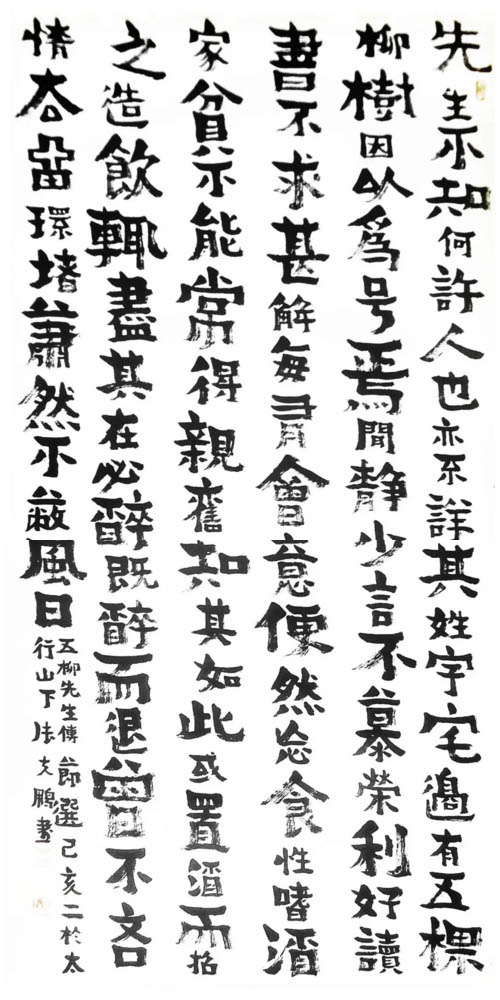 先生不知何許人也亦不詳其姓字宅邊有五棵
柳樹因以爲号焉閒静少言不慕榮利好讀
書不求甚解每有會意便然忘食性嗜酒
家貧不能常得親舊知其如此或置酒而招
之造飲輒盡其在必醉既醉而退曾不吝
情去留環堵蕭然不蔽風日
五柳先生傳節選己亥二於太
行山下鵬書